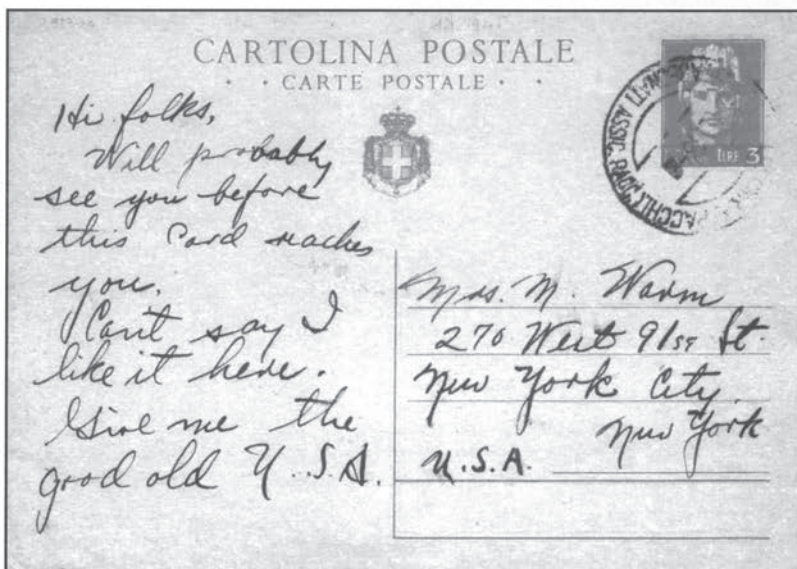 CARTOLINA POSTALE
· · CARTE POSTALE · ·
Hi folks,
Will probably
see you before
this Card reaches
you.
Can't say I
like it here.
Give me the
good old U.S.A.
LIRE 3
PACCHI
ASSIC.
Mrs. M. Warm
270 West 91st St.
New York City.
New York
U.S.A.